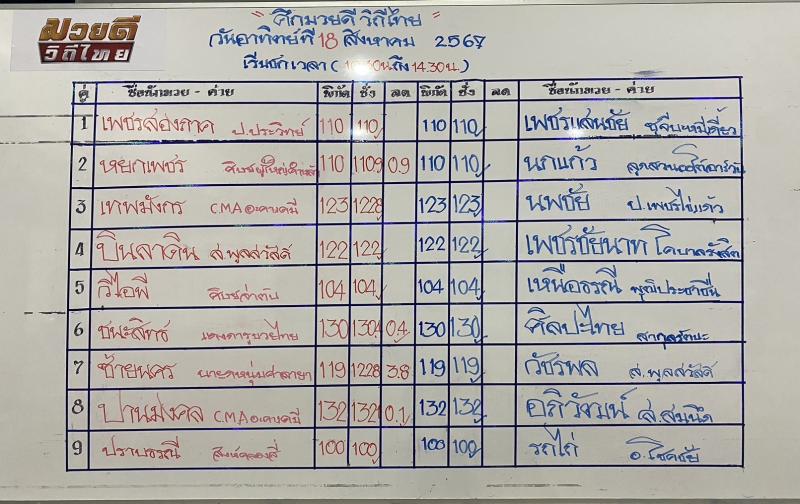 มวยดี
วิถีไทย
" ศึกมวยดี วิถีไทย "
(วันอาทิตย์ที่ 18 สิงหาคม 2567
เริ่มชกเวลา ( ถึง 14.30น.)
คู่ ชื่อนักมวย - ค่าย พิกัด ชั่ง ลด พิกัด ชั่ง ลด ชื่อนักมวย - ค่าย
1 เพชรสองภาค ป.ประวิทย์ 110 110 110 110 เพชรแสนชัย
2 หยกเพชร 110 110.9 0.9 110 110 นกแก้ว
3 เทพมังกร C.M.A อะคาเดมี่ 123 122.8 123 123 นพชัย ป.เพชรไข่แก้ว
4 บินลาดิน ส.พูลสวัสดิ์ 122 122 122 122 เพชรชัยนาท โคบาลรังสิต
5 วีไอพี ศิษย์ลำดับ 104 104 104 104 เหนือธรณี พุฒิประชาชื่น
6 ชนะสิทธ์ 130 130.4 0.4 130 130 ศิลปะไทย
7 ซ้ายนคร 119 122.8 3.8 119 119 วัชรพล ส.พูลสวัสดิ์
8 ปานมงคล C.M.A อะคาเดมี่ 132 132.1 0.1 132 132 อภิวัฒน์ ส.สมนึก
9 ปราบธรณี สิงห์คลองสี่ 100 100 100 100 รถไถ่ อ.โชคชัย